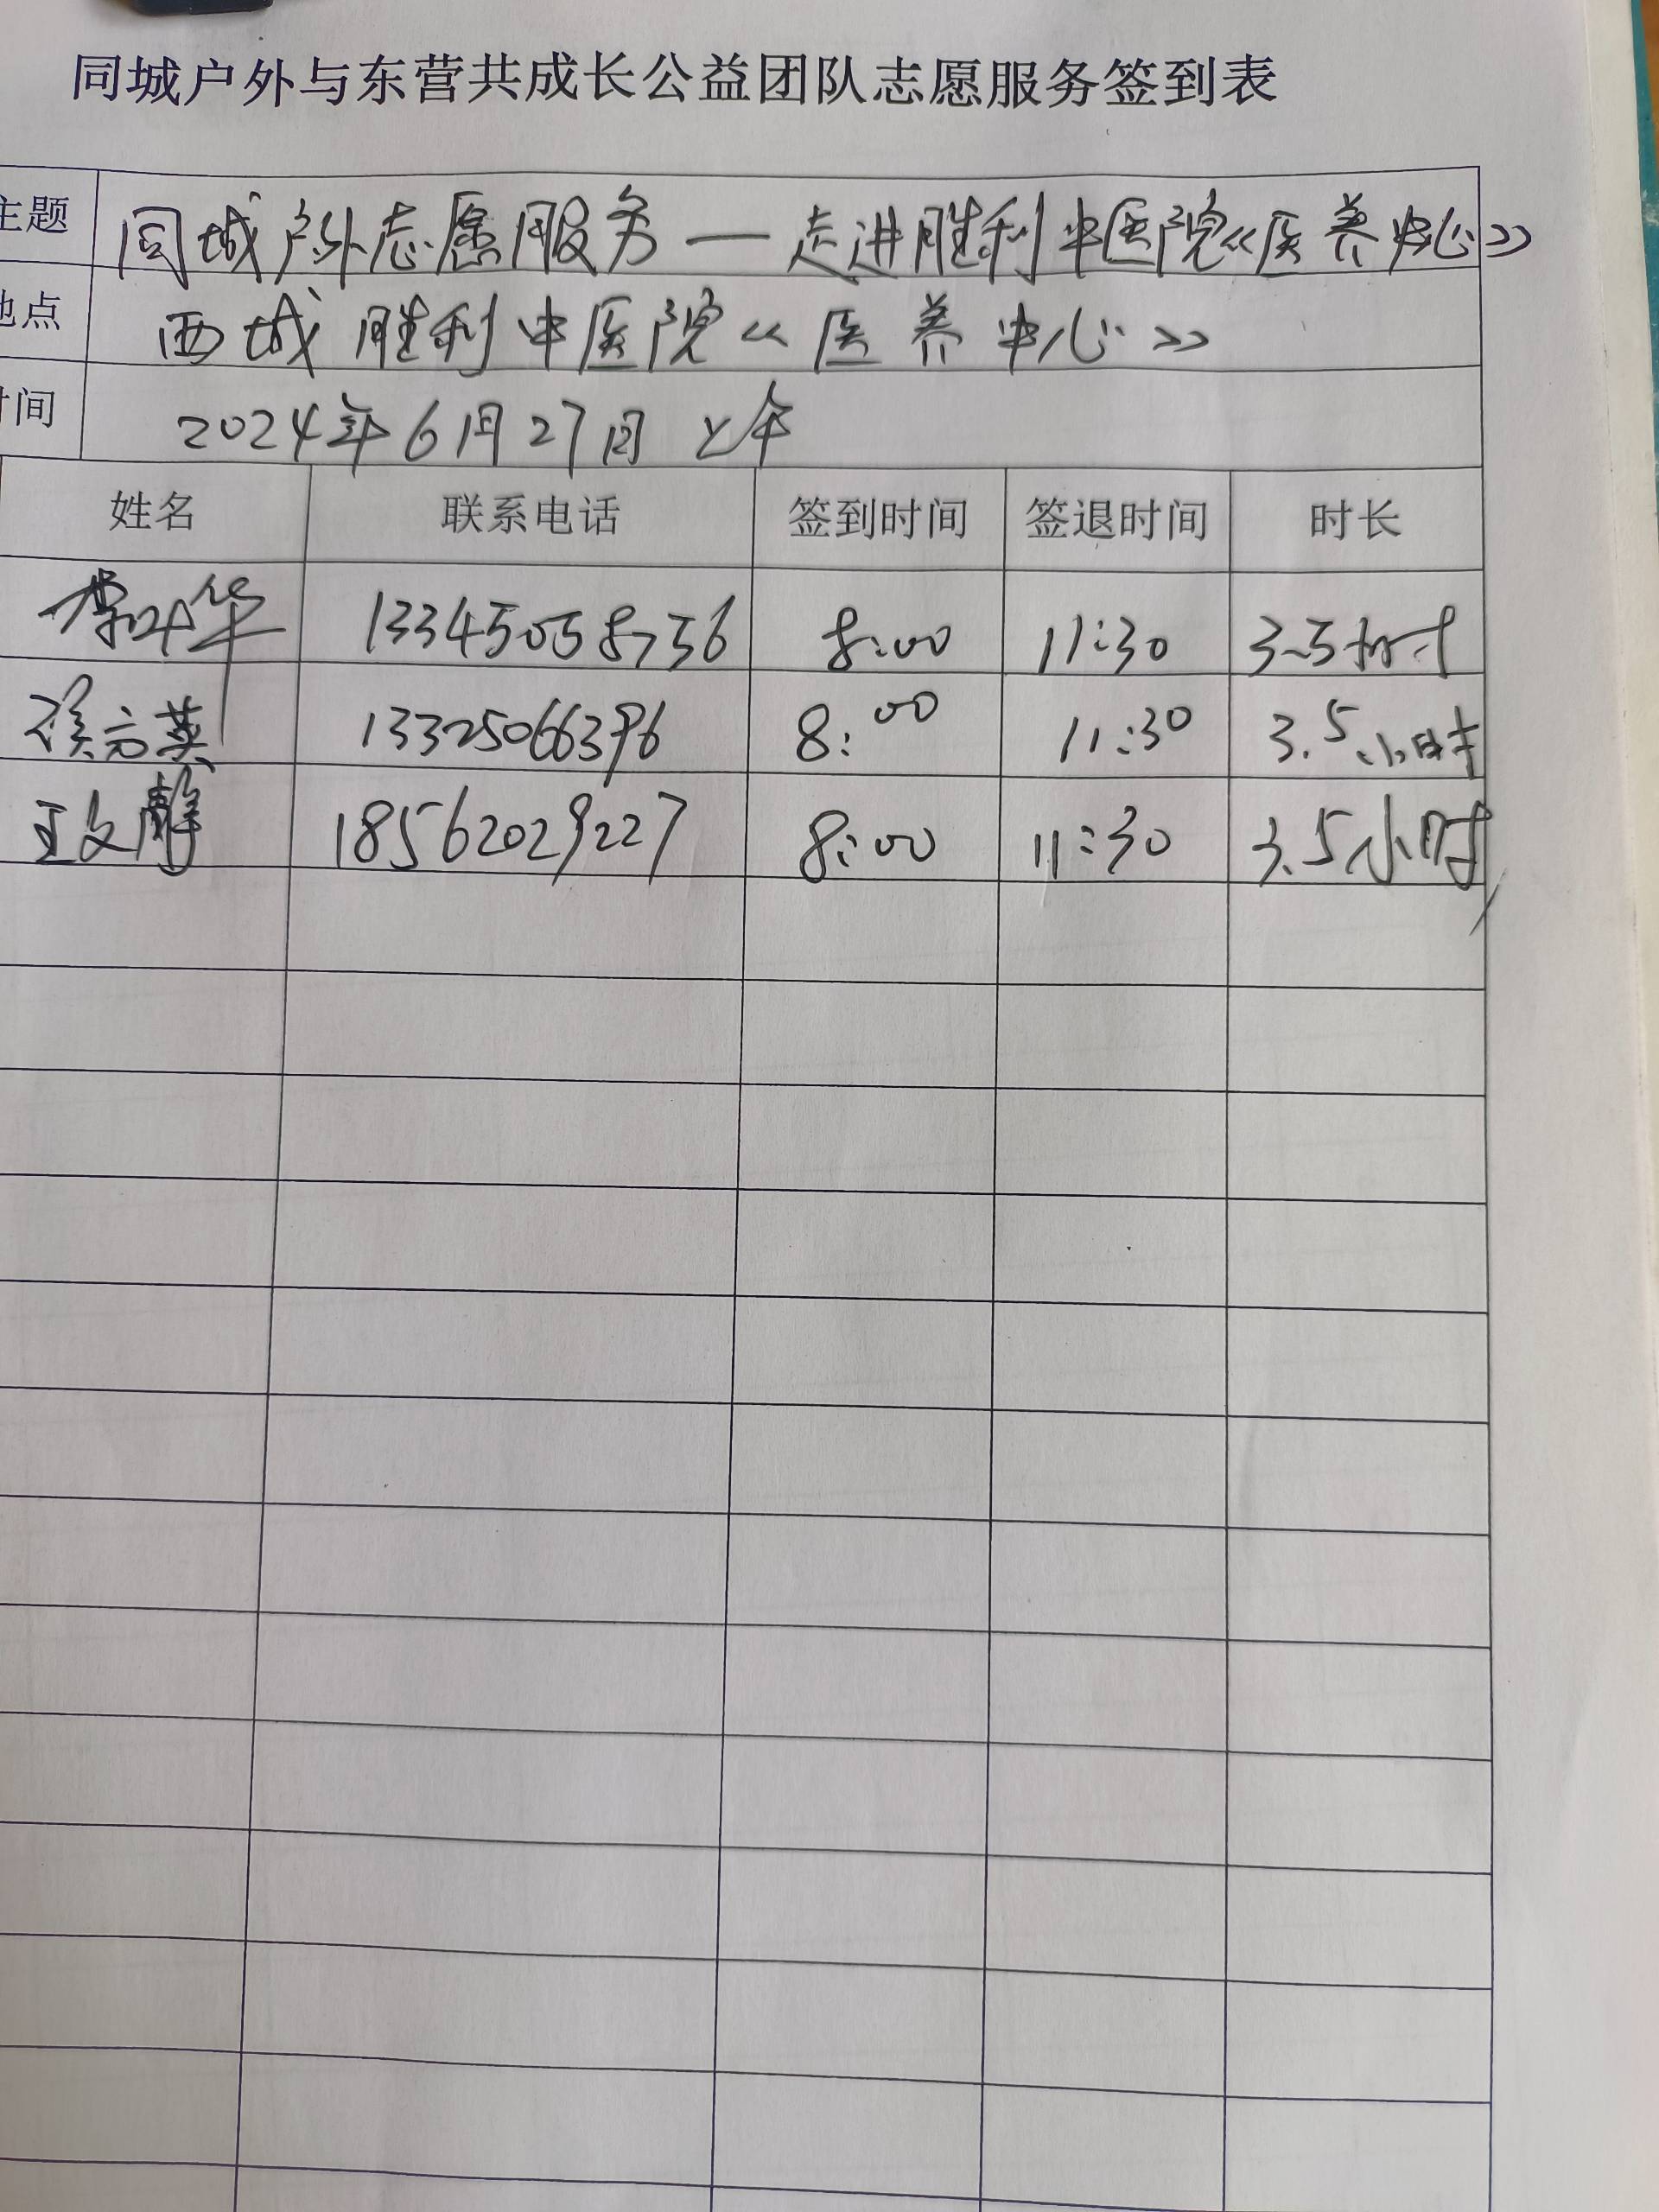 同城户外与东营共成长公益团队志愿服务签到表
主题 同城户外志愿服务—走进胜利中医院《医养中心》
地点 西城胜利中医院《医养中心》
时间 2024年6月27日 上午
姓名 联系电话 签到时间 签退时间 时长
华 13345058756 8:00 11:30 3.5小时
英 13325066396 8:00 11:30 3.5小时
王文静 18562029227 8:00 11:30 3.5小时